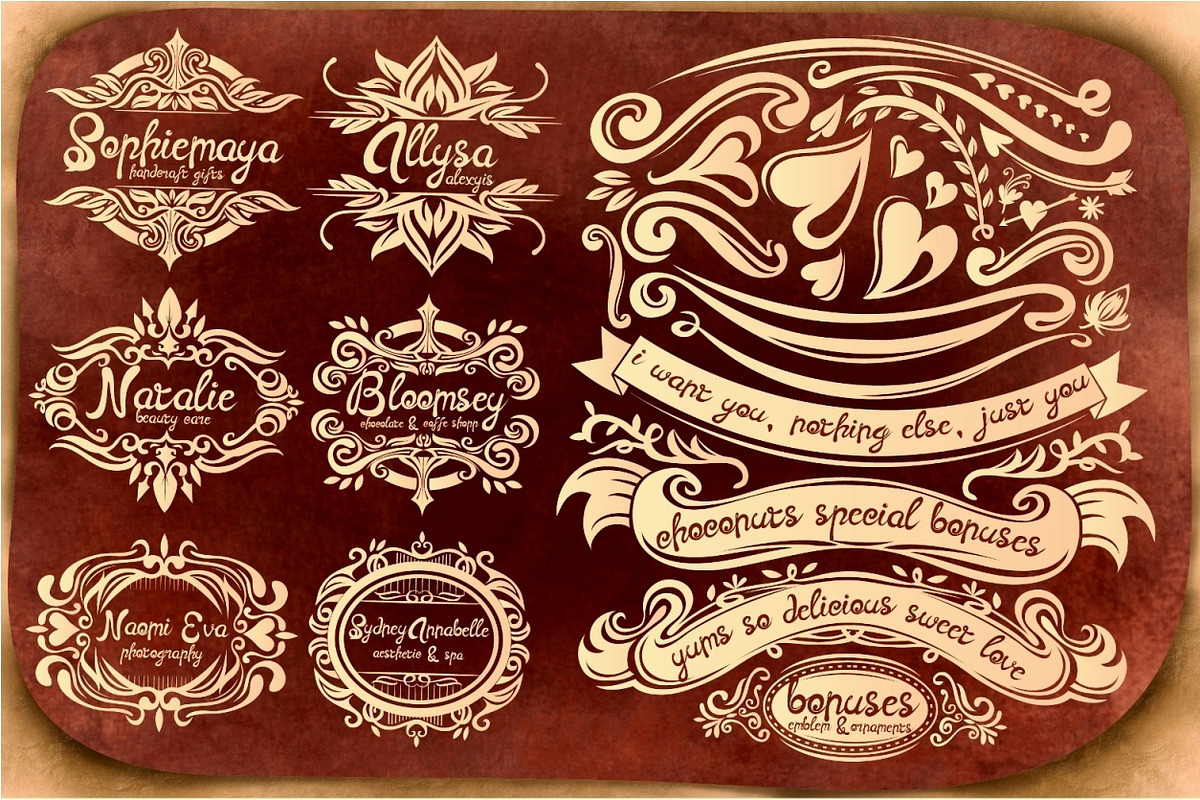 Sophiemaya
handcraft gifts
Allysa
alexyis
Natalie
beauty care
Bloomsey
chocolate & coffe shopp
Naomi Eva
photography
Sydney Annabelle
aesthetic & spa
i want you, nothing else, just you
choconuts special bonuses
yums so delicious sweet love
bonuses
emblem & ornaments